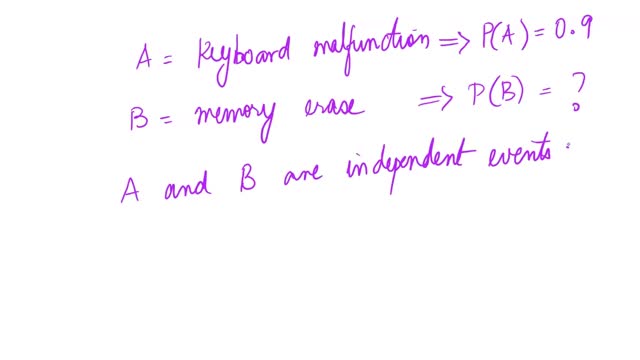 A = Keyboard malfunction => P(A) = 0.9
B = memory erase => P(B) = ?
A and B are independent events.